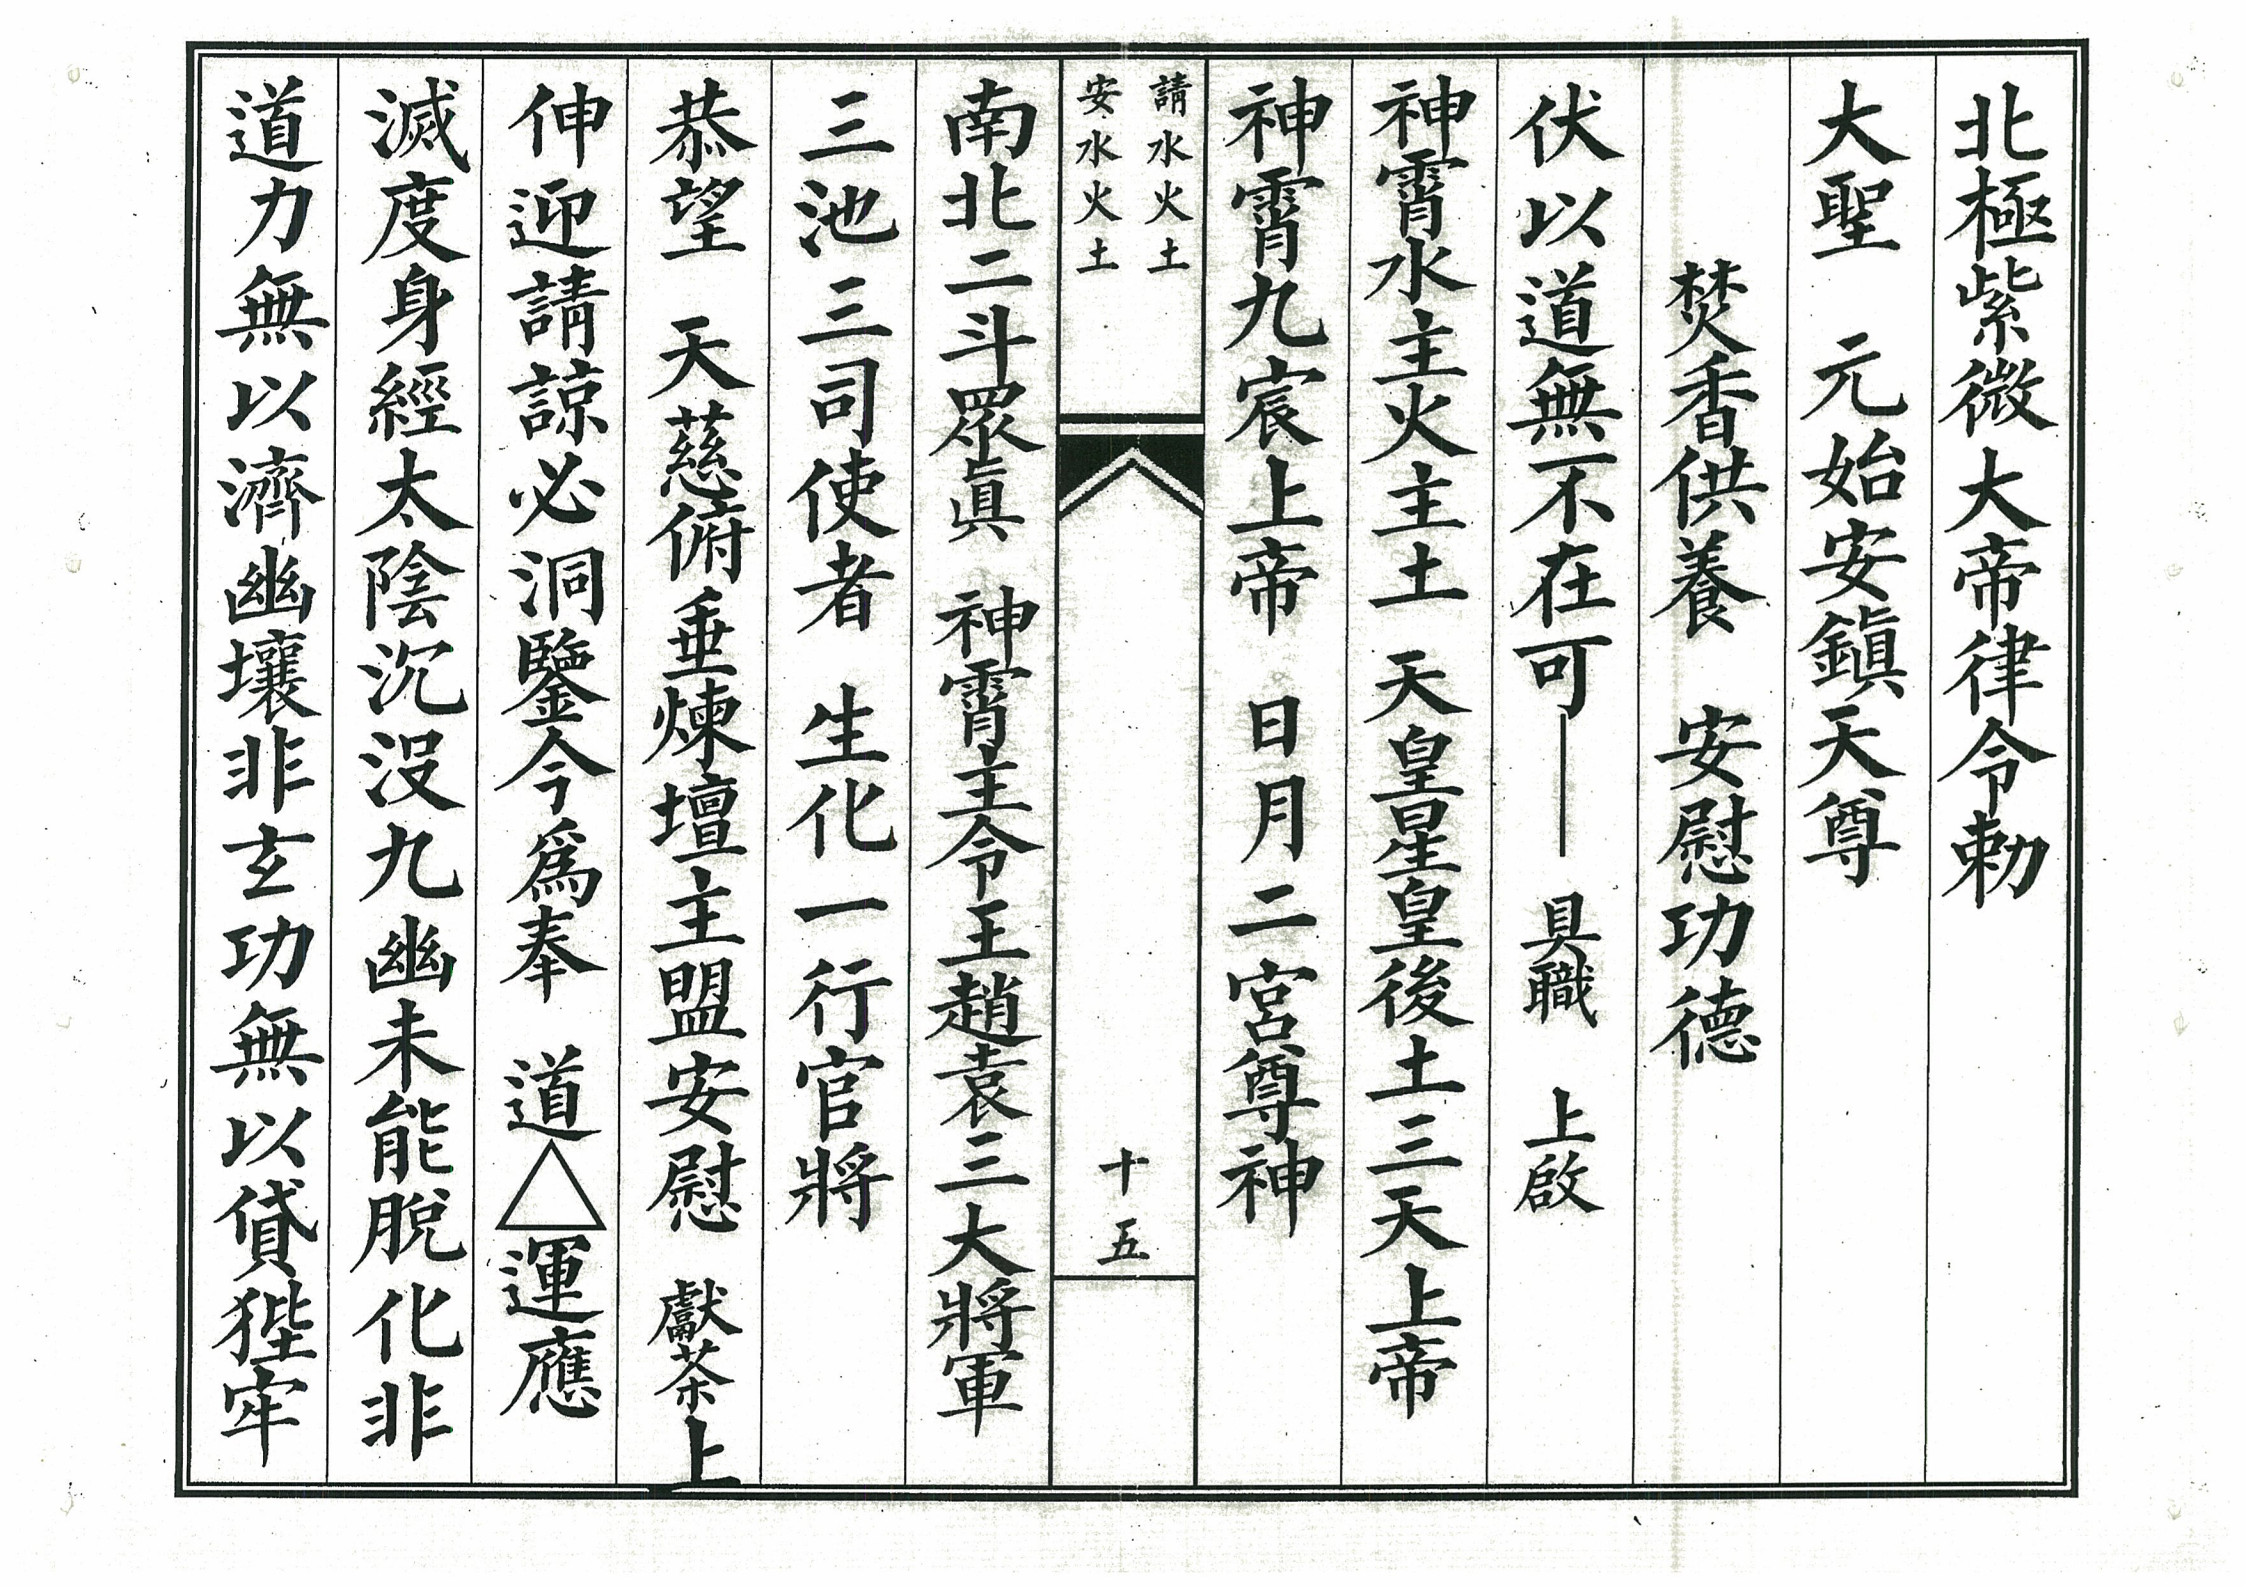 北極紫微大帝律令勅
大聖　元始安鎮天尊
焚香供養　安慰功德
伏以道無不在可——　具職　上啟
神霄水主火主土　天皇星皇後土三天上帝
神霄九宸上帝　日月二宮尊神
請水火土
安水火土
十五
南北二斗眾眞　神霄主令王趙袁三大將軍
三池三司使者　生化一行官將
恭望　天慈俯垂煉壇主盟安慰　獻茶上
伸迎請諒必洞鑒今爲奉　道△運應
滅度身經太陰沉沒九幽未能脫化非
道力無以濟幽壤非玄功無以貸狴牢